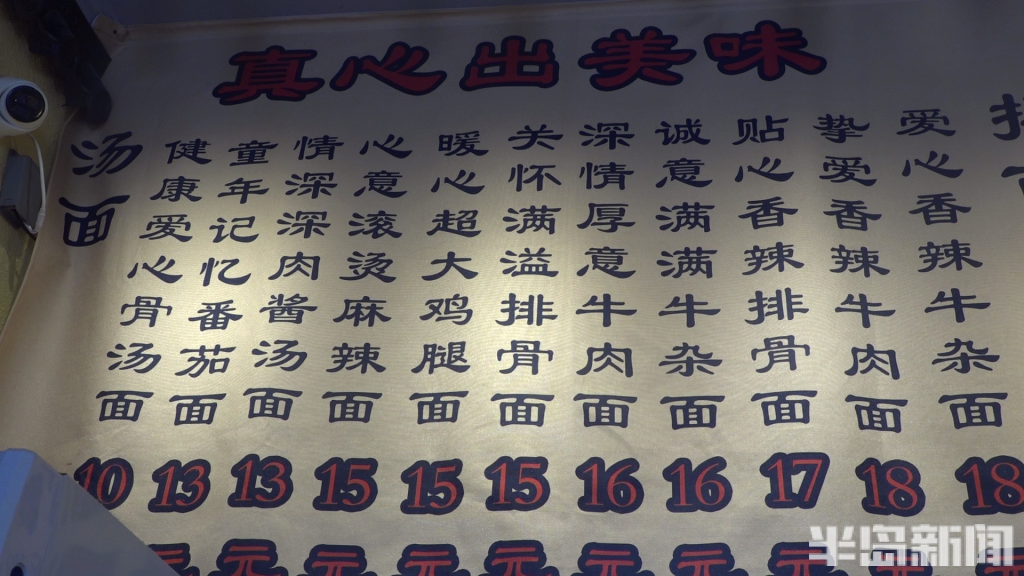 真心出美味
汤面
健康爱心骨汤面 10元
童年记忆番茄面 13元
情深深肉酱汤面 13元
心意滚烫麻辣面 15元
暖心超大鸡腿面 15元
关怀满溢排骨面 15元
深情厚意牛肉面 16元
诚意满满牛杂面 16元
贴心香辣排骨面 17元
挚爱香辣牛肉面 18元
爱心香辣牛杂面 18元
半岛新闻